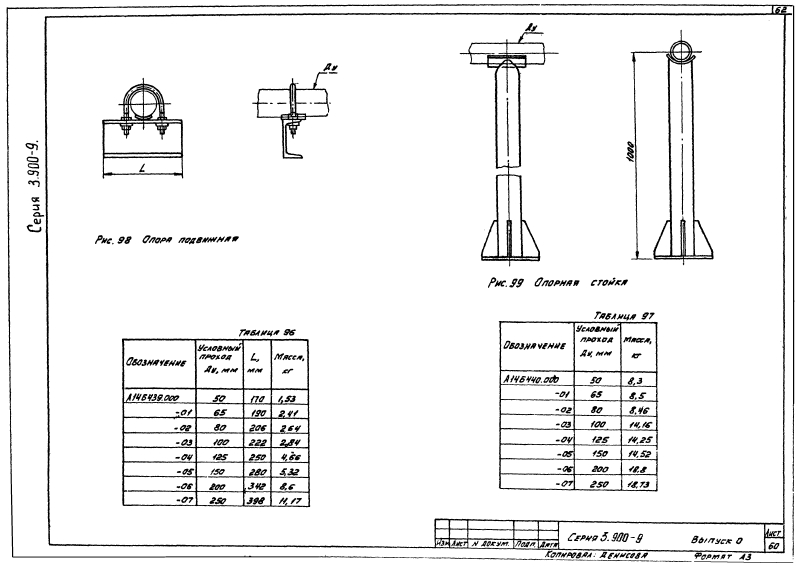 62
Серия 3.900-9.
Ду
L
Рис. 98 Опора подвижная
Ду
1000
Рис. 99 Опорная стойка
Таблица 96
Обозначение | Условный проход Ду, мм | L, мм | Масса, кг
А14Б439.000 | 50 | 170 | 1,53
-01 | 65 | 190 | 2,41
-02 | 80 | 206 | 2,64
-03 | 100 | 222 | 2,84
-04 | 125 | 250 | 4,66
-05 | 150 | 280 | 5,32
-06 | 200 | 342 | 8,6
-07 | 250 | 398 | 11,17
Таблица 97
Обозначение | Условный проход Ду, мм | Масса, кг
А14Б440.000 | 50 | 8,3
-01 | 65 | 8,5
-02 | 80 | 8,46
-03 | 100 | 14,16
-04 | 125 | 14,25
-05 | 150 | 14,52
-06 | 200 | 18,8
-07 | 250 | 18,73
Изм Лист N докум. Подп. Дата
Серия 3.900-9 Выпуск 0
Лист
60
Копировал: Денисова Формат А3